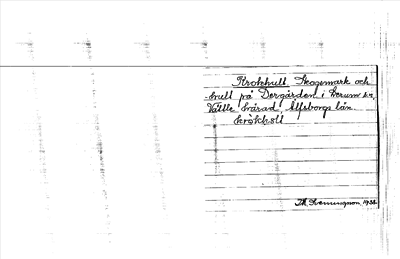 Krokhult. Skogsmark och
hult på Dergården i Herum sn,
Vättle härad, Älfsborgs län.
kròkhʋlt
Th. Hemmingson, 1932.